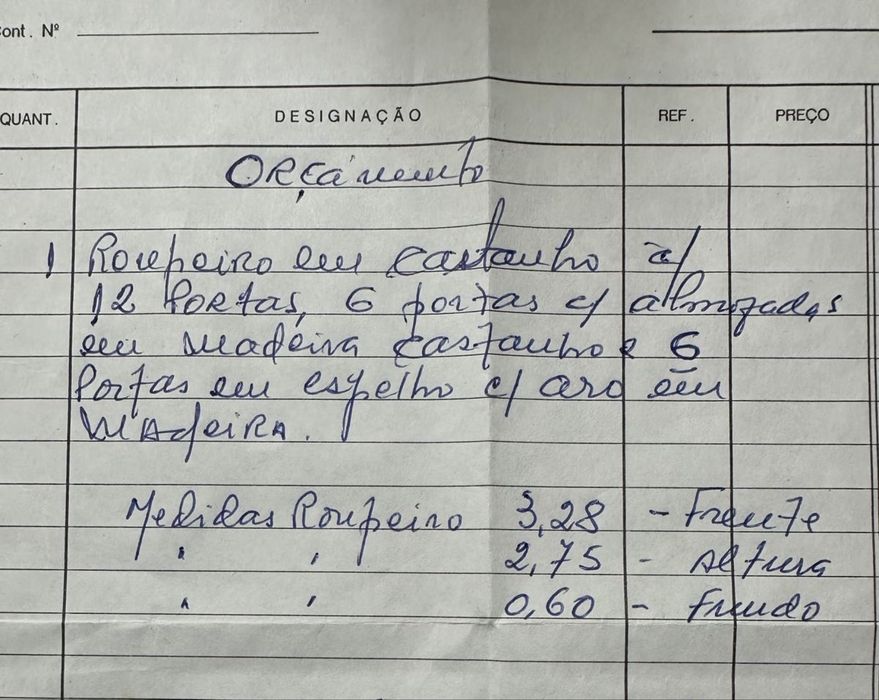 Cont. Nº
QUANT. DESIGNAÇÃO REF. PREÇO
ORçámento
1 Roupeiro em castanho c/
12 PORtas, 6 portas c/ almofadas
em madeira castanho e 6
Portas em espelho c/ aro em
MAdeiRA.
Medidas Roupeiro 3,28 - Frente
" " 2,75 - Altura
" " 0,60 - Fundo